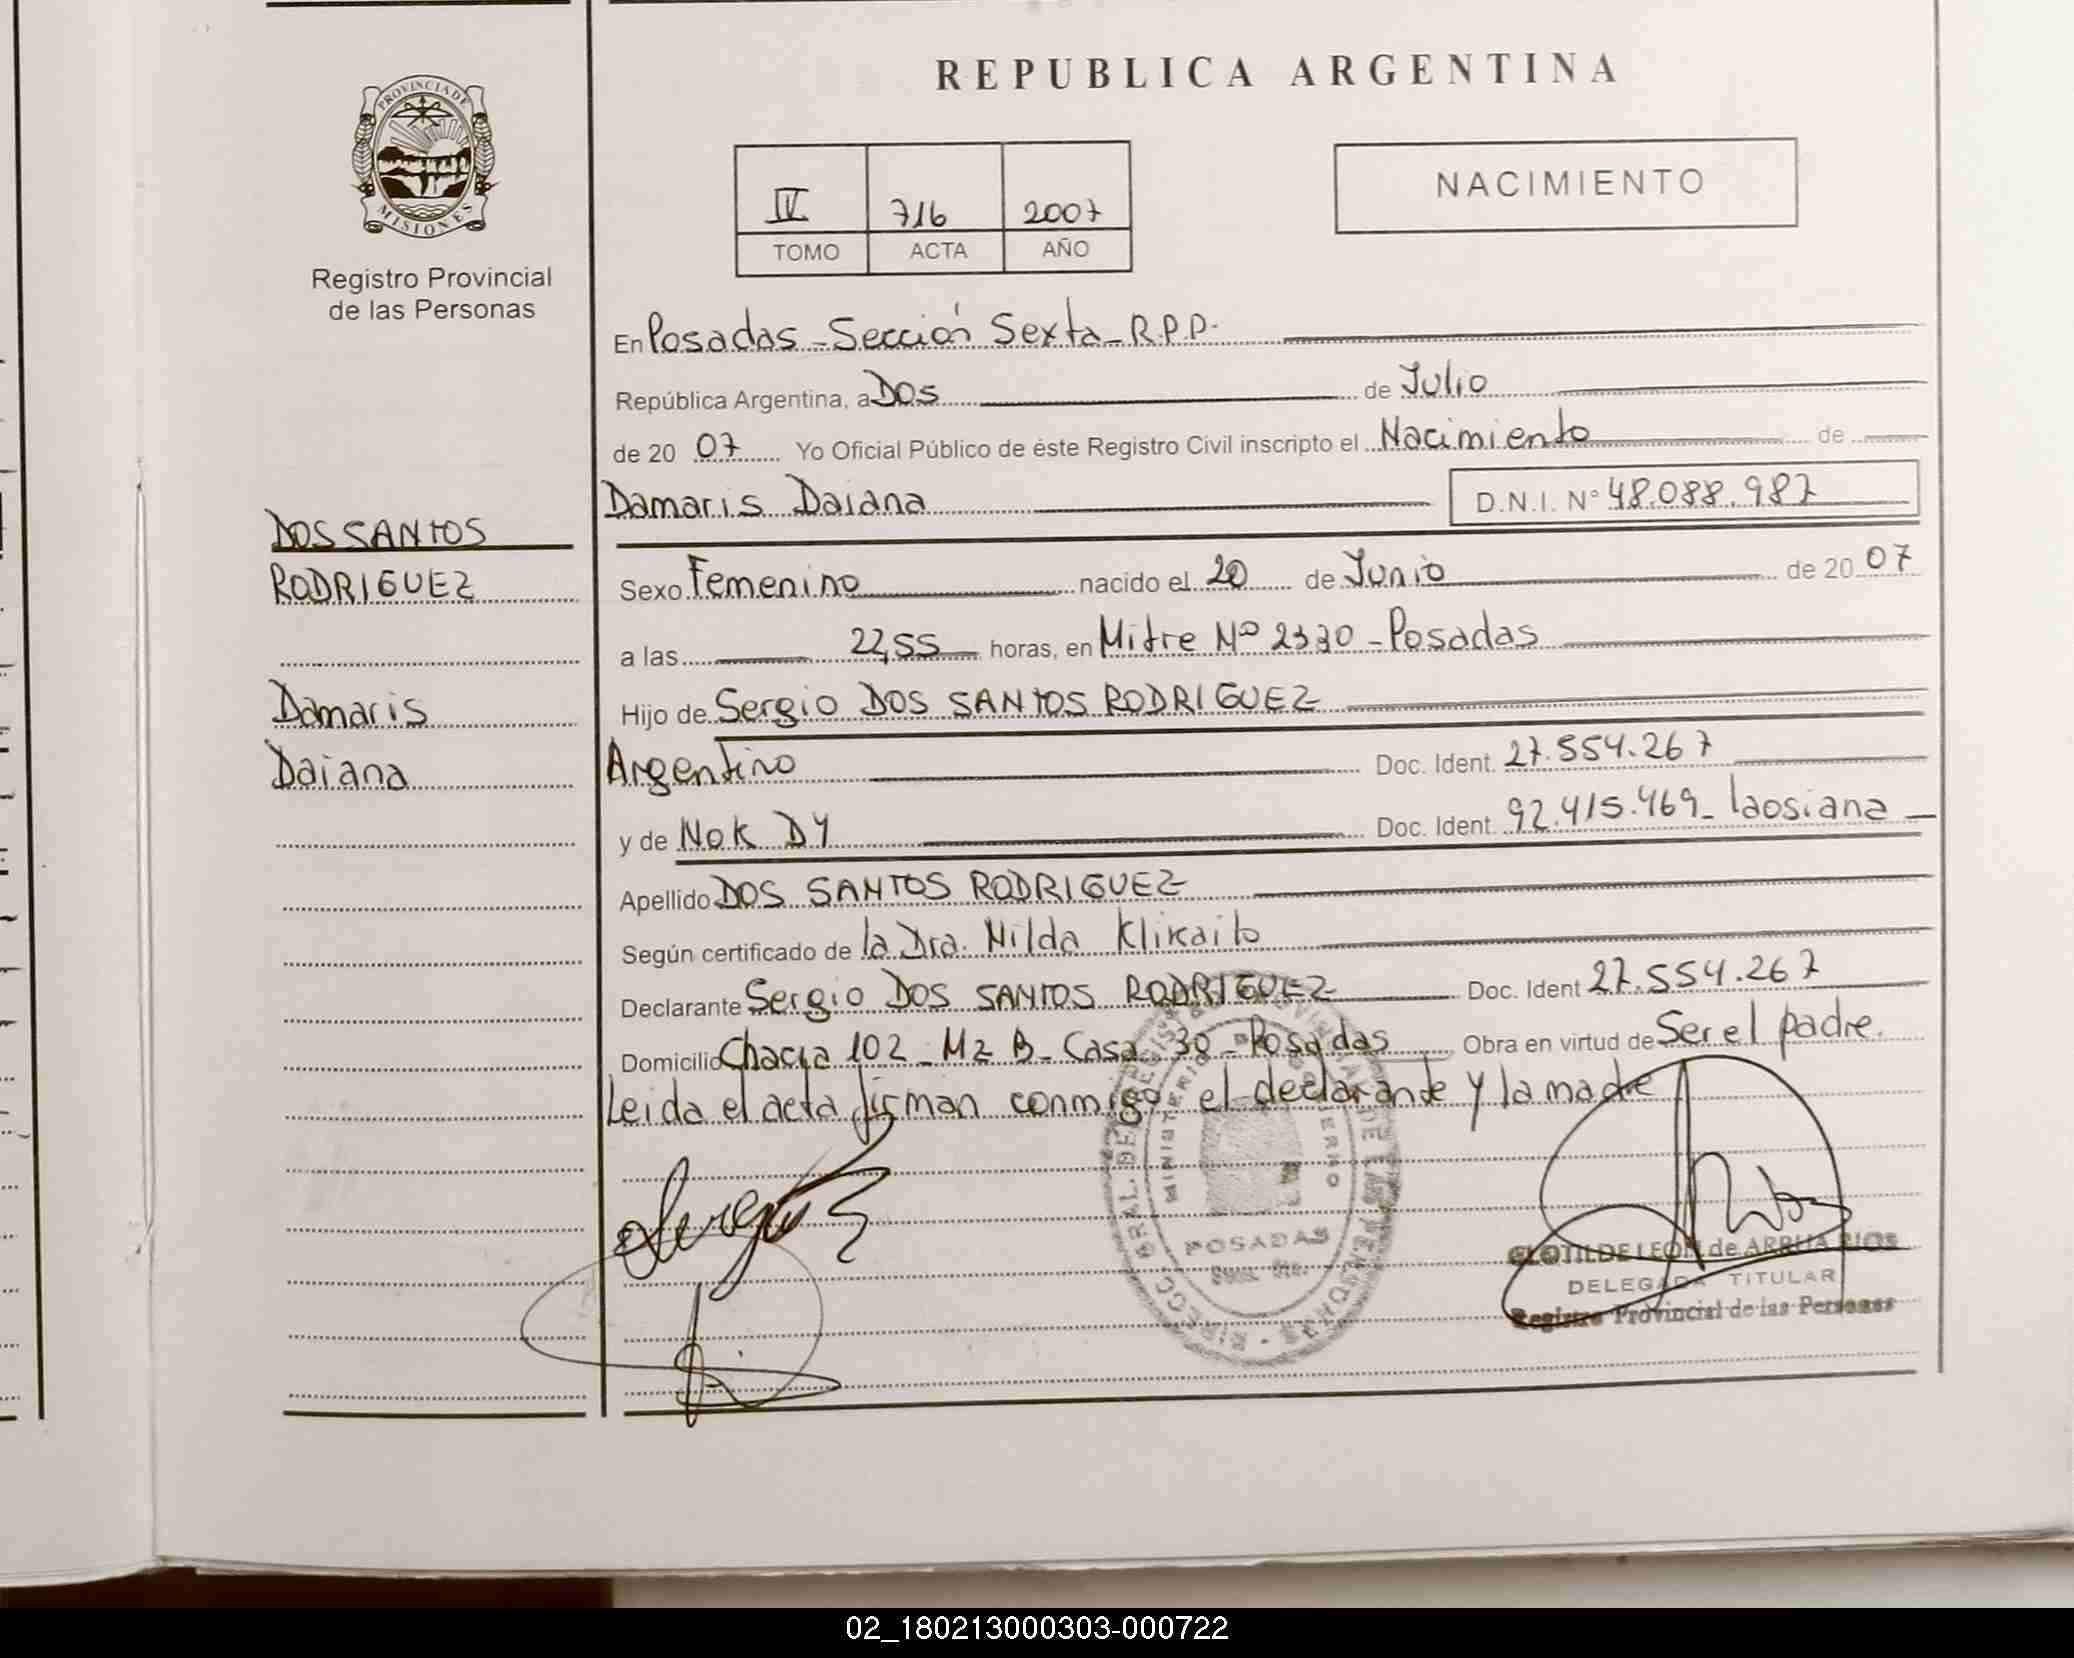 PROVINCIA DE
MISIONES
Registro Provincial
de las Personas
DOS SANTOS
RODRIGUEZ
Damaris
Daiana
REPUBLICA ARGENTINA
IV 716 2007
TOMO ACTA AÑO
NACIMIENTO
En Posadas - Sección Sexta - R.P.P.
República Argentina, a Dos de Julio
de 20 07 Yo Oficial Público de éste Registro Civil inscripto el Nacimiento de
Damaris Daiana D.N.I. Nº 48.088.987
Sexo Femenino nacido el 20 de Junio de 20 07
a las 22,55 horas, en Mitre Nº 2330 - Posadas
Hijo de Sergio DOS SANTOS RODRIGUEZ
Argentino Doc. Ident. 27.554.267
y de Nok DY Doc. Ident. 92.415.469 - laosiana
Apellido DOS SANTOS RODRIGUEZ
Según certificado de la Dra. Nilda
Declarante Sergio DOS SANTOS RODRIGUEZ Doc. Ident 27.554.267
Domicilio Chacra 102 - Mz B - Casa 30 - Posadas Obra en virtud de Ser el padre.
Leida el acta firman conmigo el declarante y la madre
POSADAS
CLOTILDE LEON de ARRUA RIOS
DELEGADA TITULAR
Registro Provincial de las Personas
02_180213000303-000722